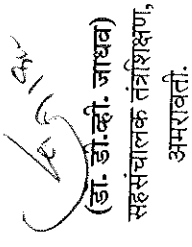 (डॉ. डी.व्ही. जाधव)
सहसंचालक तंत्रशिक्षण,
अमरावती.